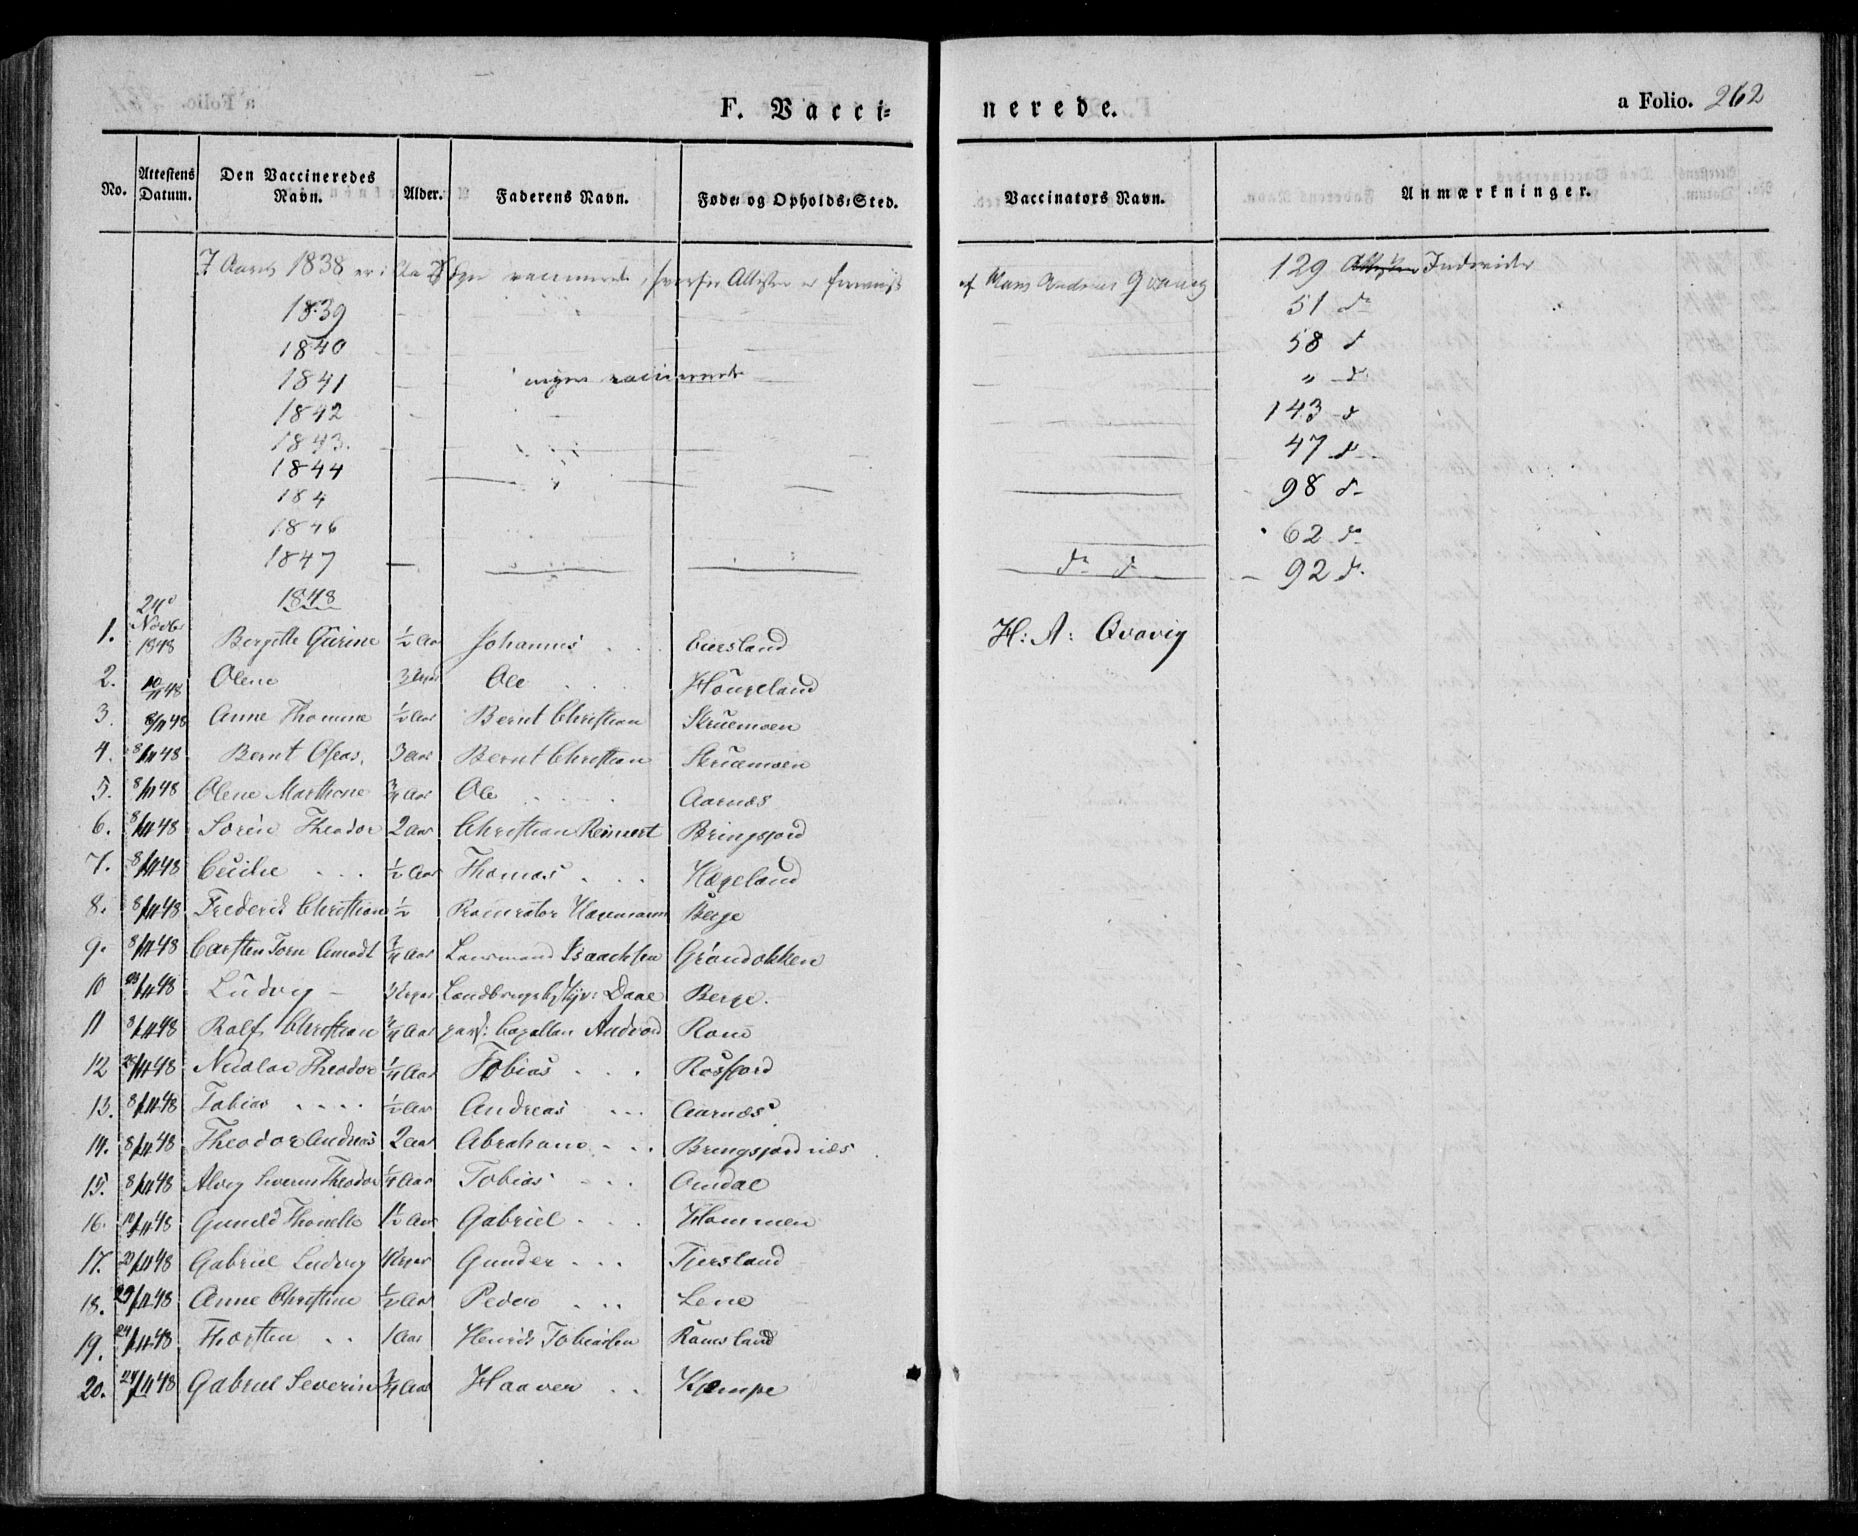 F. Vacci⸗ nerede. a Folio. 262
No. Attestens Datum. Den Vaccineredes Navn. Alder. Faderens Navn. Føde⸗ og Opholds⸗Sted. Vaccinators Navn. Anmærkninger.
I Aaret 1838 er i vaccinerede, hvorfor Attester er af Hans Andreas Qvavig 129 Individer
1839 51 do
1840 58 d
1841 ingen vaccinerede " d
1842 143 d
1843. 47 d
1844 98 d
184
1846 62 do
1847 do d 92 d.
1848
1. 24de Novbr 1848 Bergitte Gurine ½ Aar Johannes Eiersland H: A: Qvavig
2. 10/11 48 Olene Ole Hougeland
3. 8/11 48 Anne Thomine ½ Aar Bernt Christian Skruemoen
4. 8/11 48 Bernt Oseas. 3 Aar Bernt Christian Skruemoen
5. 8/11 48 Olene Marthone ¾ Aar Ole Aarnæs
6. 8/11 48 Sorén Theodor 2 Aar Christian Reinert Bringsjord
7. 8/11 48 Cecilie ½ Aar Thomas Hægeland
8. 8/11 48 Frederik Christian ½ Procurator Haumann Berge
9. 8/11 48 Carsten Torn Amodt ¾ Aar Lensmand Isaachsen Gröndokken
10 48 Ludvig Daae Berge.
11 8/11 48 Rolf Christian ¾ Aar pers: Capellan Andvord Rom
12 48 Nicolai Theodor ¼ Aar Tobias Rosfjord
13. 8/11 48 Tobias ½ Aar Andreas Aarnæs
14. 8/11 48 Theodor Andreas 2 Aar Abraham Bringsjordnæs
15. 8/11 48 Alvig Severin Theodor ¼ Aar Tobias Omdal
16. 48 Gunild Thonette 1½ Aar Gabriel Hommen
17. 48 Gabriel Ludvig Gunder Fjersland
18. 29/11 48 Anne Christine ½ Aar Peder Lene
19. 24/11 48 Thorsten 1 Aar Henrik Tobiassen Ramsland
20. 24/11 48 Gabriel Severin ¾ Aar Haaver Kjempe